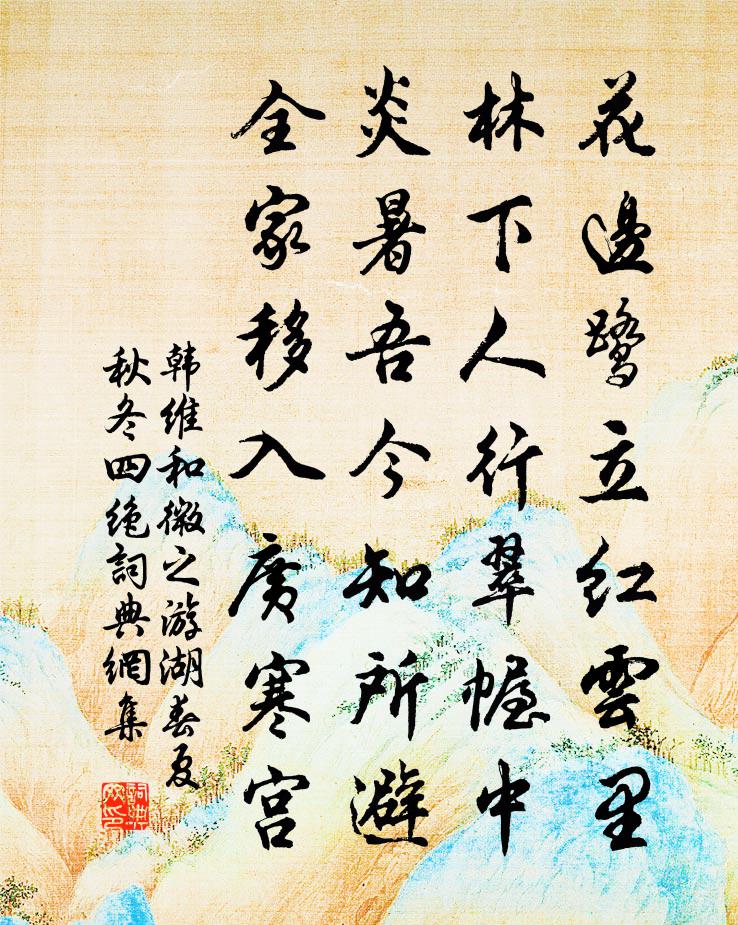 花邊鷺立红雲里
林下人行翠幄中
炎暑吾今知所避
全家移入广寒宫
韩维和微之游湖春夏
秋冬四绝詞典網集